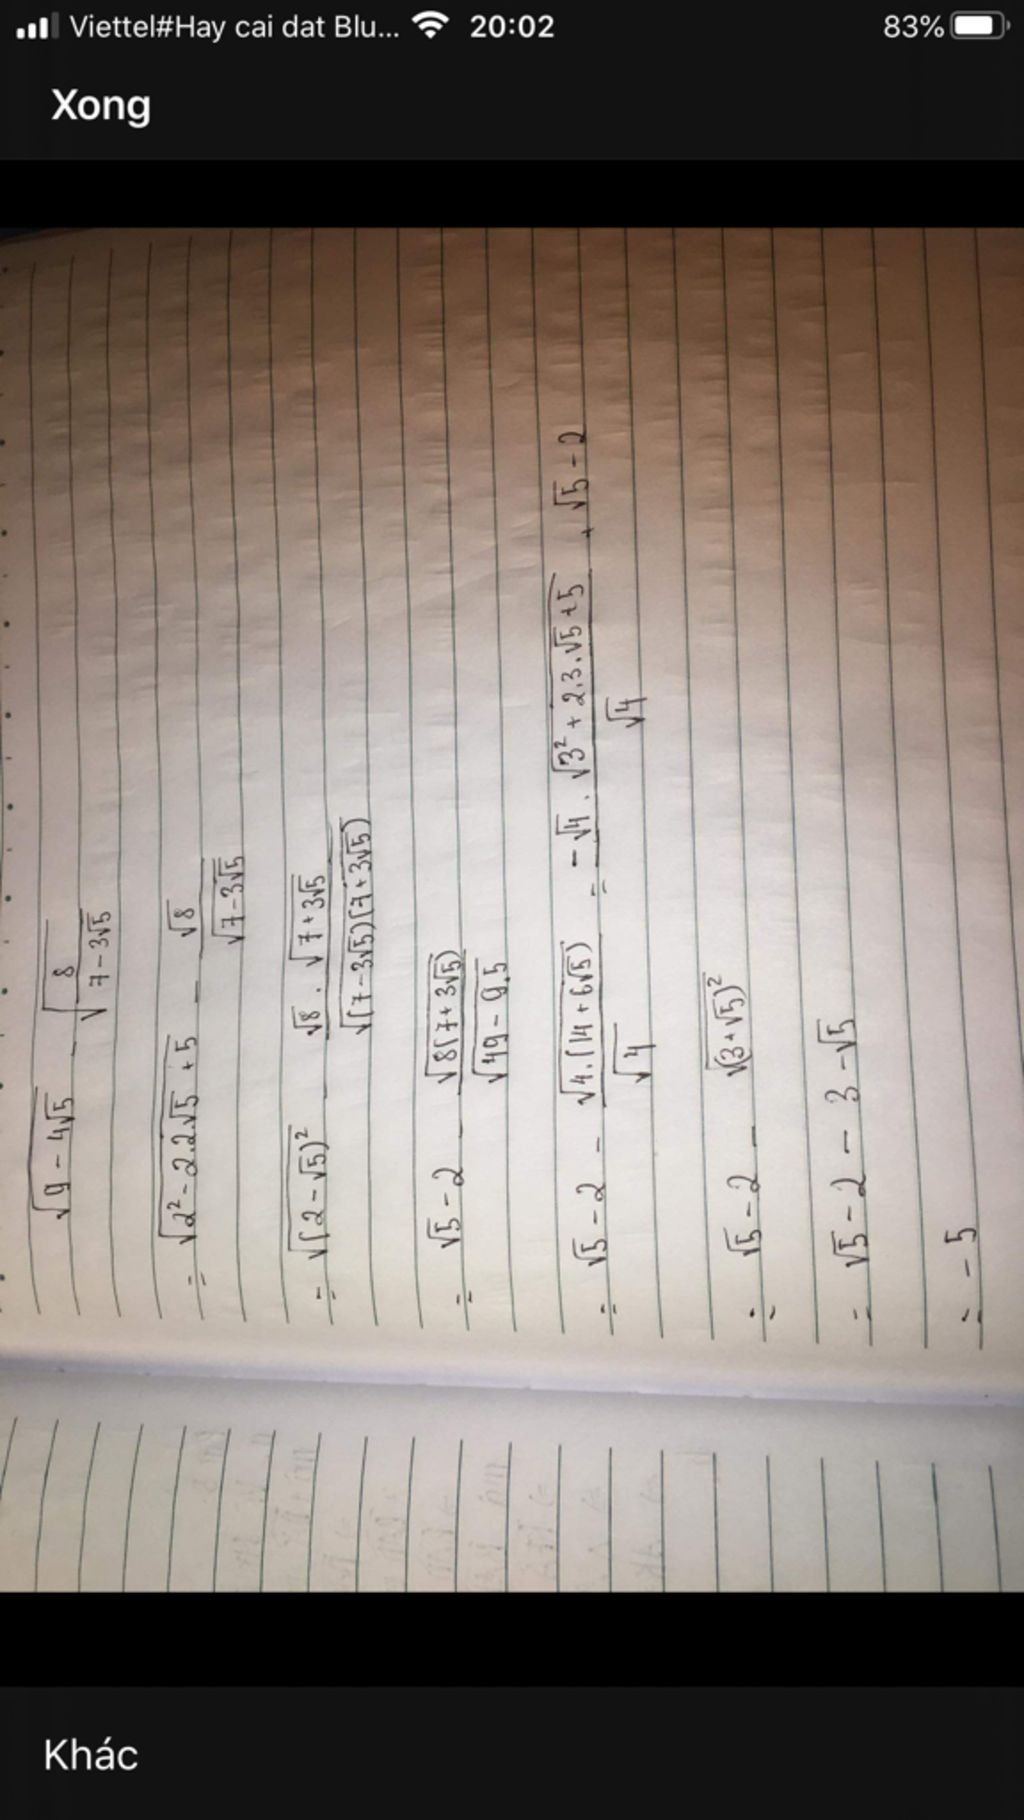 Viettel#Hay cai dat Blu... 20:02 83%
Xong
√(9 - 4√5) - √(8/(7 - 3√5))
= √(2² - 2.2√5 + 5) - √8/√(7 - 3√5)
= √((2 - √5)²) - (√8 . √(7 + 3√5))/√((7 - 3√5)(7 + 3√5))
= √5 - 2 - √(8(7 + 3√5))/√(49 - 9.5)
= √5 - 2 - √(4.(14 + 6√5))/√4 = (-√4 . √(3² + 2.3.√5 + 5))/√4 + √5 - 2
= √5 - 2 - √((3 + √5)²)
= √5 - 2 - 3 - √5
= - 5
Khác